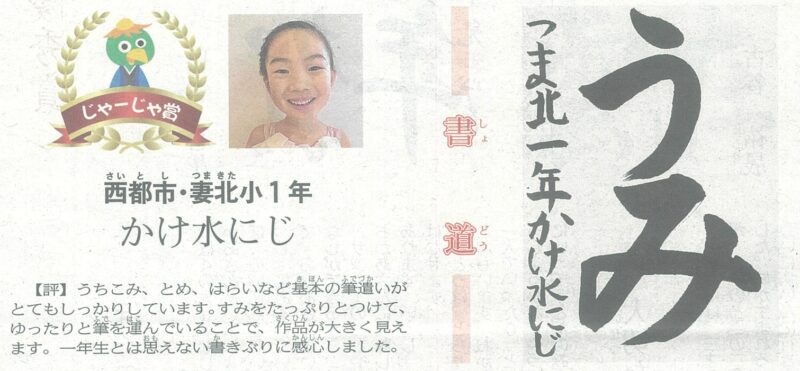 うみ
つま北一年かけ水にじ
書道
しょどう
じゃーじゃ賞
さいとし つまきた
西都市・妻北小1年
かけ水にじ
【評】うちこみ、とめ、はらいなど基本の筆遣いが
きほん ふでづか
とてもしっかりしています。すみをたっぷりとつけて、
ゆったりと筆を運んでいることで、作品が大きく見え
ふで はこ さくひん
ます。一年生とは思えない書きぶりに感心しました。
おも か かんしん